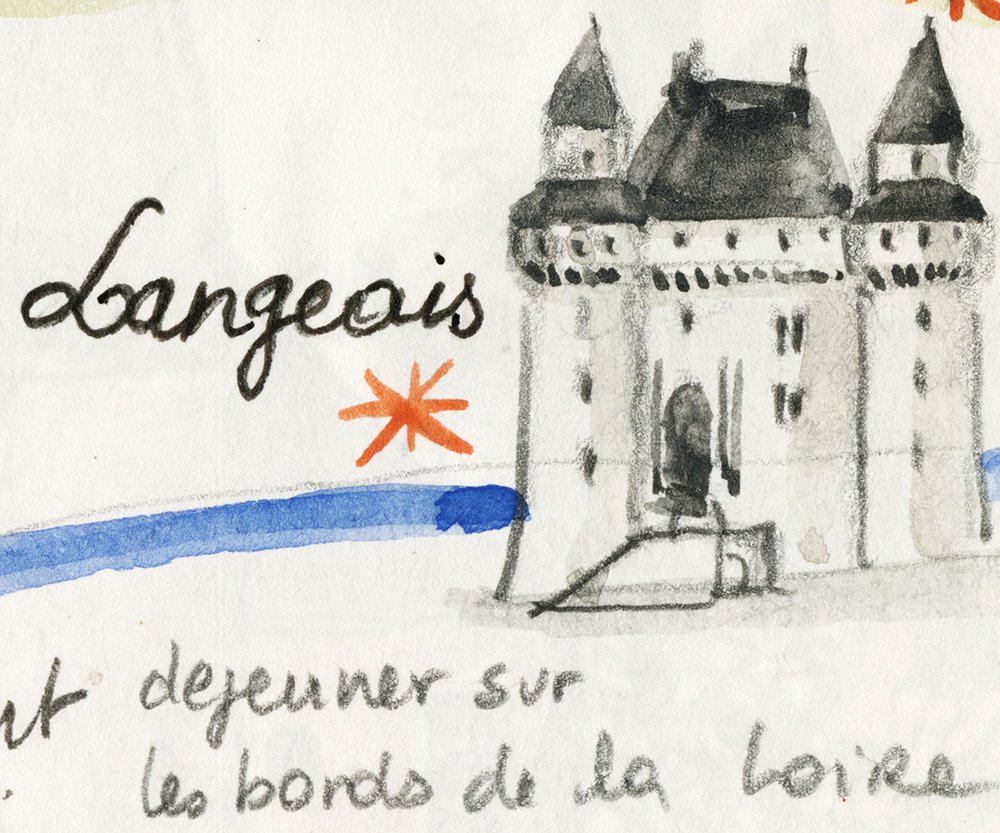 Langeais
dejeuner sur
les bords de la Loire